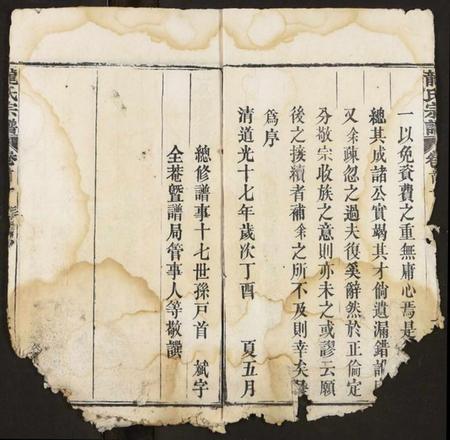 龍氏宗譜
一以免資費之重無庸心焉是
總其成諸公實竭其才倘遺漏錯訛
又余疎忽之過夫復奚辭然於正倫定
分敬宗收族之意則亦未之或謬云願
後之接續者補余之所不及則幸矣
為序
清道光十七年歲次丁酉 夏五月
總修譜事十七世孫戸首 斌字
全菴暨譜局管事人等敬譔
龍氏宗譜